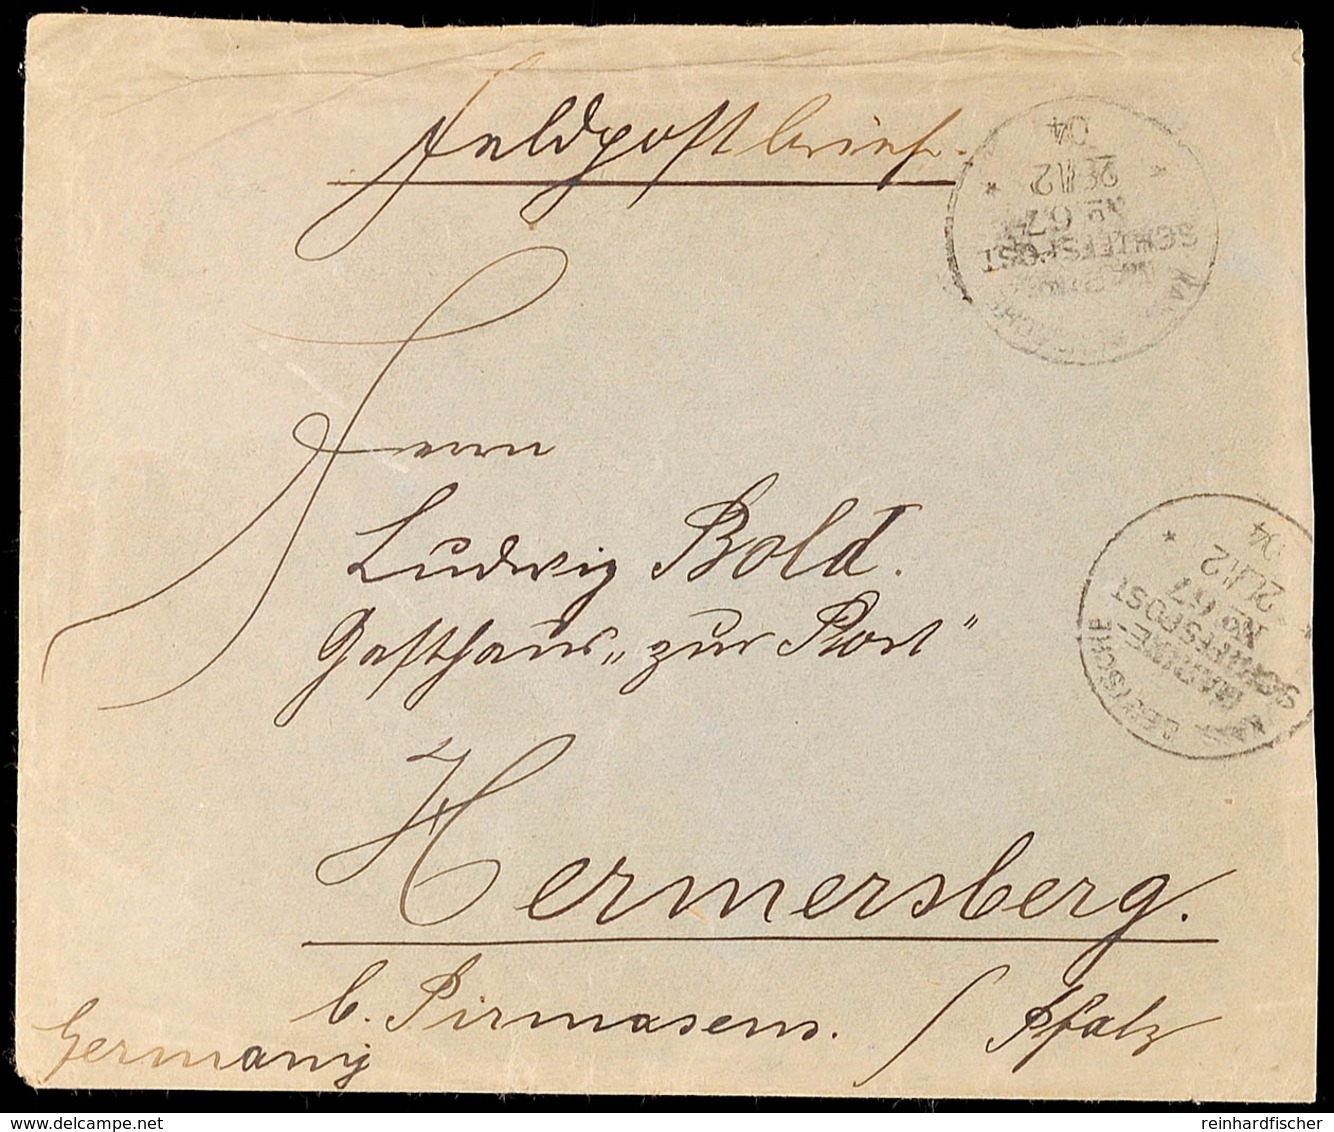 Feldpostbrief.
04
26/12
No 67
SCHIFFSPOST
Herrn
Ludwig Bold.
Gasthaus „zur Post"
04
26/12
No 67
SCHIFFSPOST
MARINE-
KAIS. DEUTSCHE
Hermersberg.
b. Pirmasens. / Pfalz
Germany
www.delcampe.net
reinhardfischer